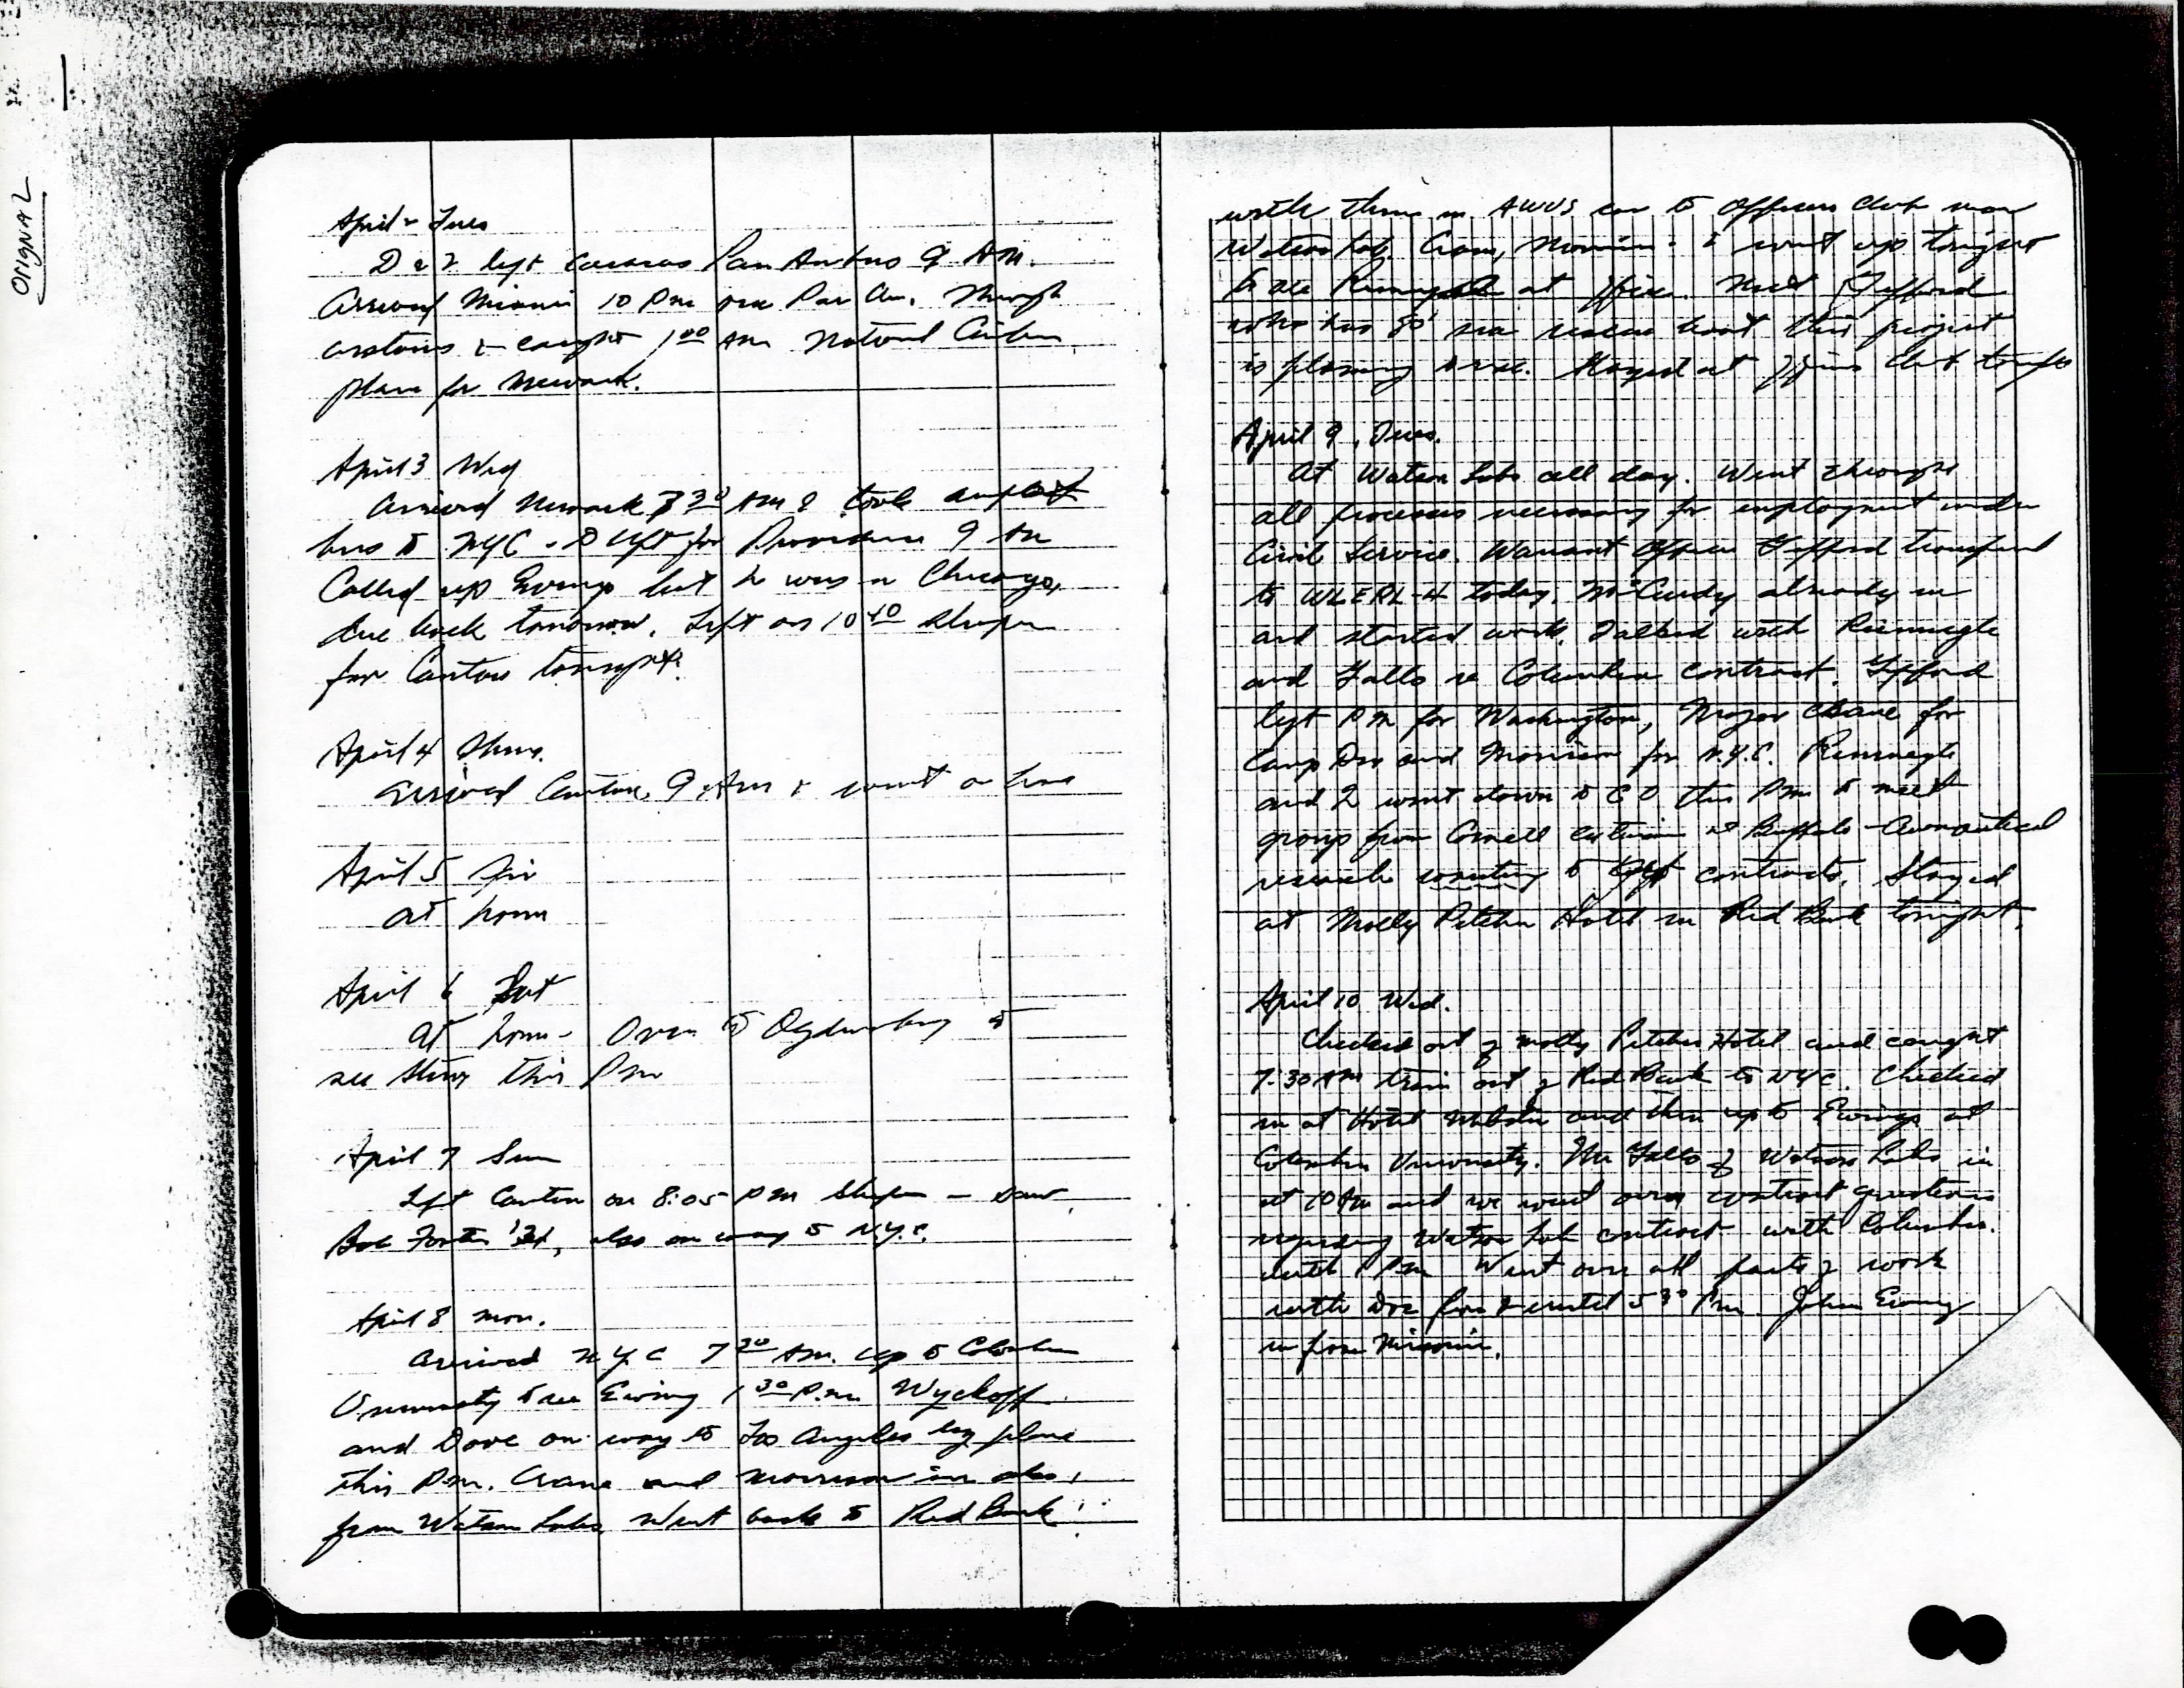 ORIGINAL
April 2 Tues
D & I left Caracas Pan Am 9 AM.
Arrived Miami 10 PM via Pan Am. Through
customs & caught 1 00 AM National Airlines
plane for Newark.
April 3 Wed
Arrived Newark 7 30 AM & took airport
bus to NYC - D left for Providence 9 AM
Called up Ewing but he was in Chicago,
due back tomorrow. Left on 10 40 sleeper
for Canton tonight.
April 4 Thurs.
Arrived Canton 9 AM & went on home
April 5 Fri
At home
April 6 Sat
At home - Over to Ogdensburg to
see this PM
April 7 Sun
Left Canton on 8:05 PM sleeper - saw
Bob Foster '31, also on way to N.Y.C.
April 8 Mon.
Arrived NYC 7 30 AM. Up to Columbia
University to see Ewing 1 30 P.M. Wyckoff
and Dove on way to Los Angeles by plane
this P.M. Crane and Morrison in also,
from Watson Labs. Went back to Red Bank
with them in car to Officers Club near
Watson Lab. Crane, Morrison & I went up tonight
to see at office. Met Gifford
who has 80' sea rescue boat this project
is planning to use. Stayed at Officers Club tonight
April 9, Tues.
At Watson Labs all day. Went through
all processes necessary for employment under
Civil Service. Warrant Officer Gifford transferred
to WLERL-4 today. McCurdy already in
and started work. Talked with
and Gallo re Columbia contract. Gifford
left PM for Washington, Major Crane for
Camp Dix and Morrison for N.Y.C.
and I went down to EO this PM to meet
group from Cornell at Buffalo - Aeronautical
research wanting to get contracts. Stayed
at Molly Pitcher Hotel in Red Bank tonight.
April 10 Wed.
Checked out of Molly Pitcher Hotel and caught
7:30 AM train out of Red Bank to NYC. Checked
in at Hotel Webster and then up to Ewings at
Columbia University. Mr Gallo of Watson Labs in
at 10 AM and we went over contract questions
regarding Watson Lab contract with Columbia.
until 1 PM Went over all parts of work
with Doc from 2 until 5 30 PM John Ewing
in from Missouri.